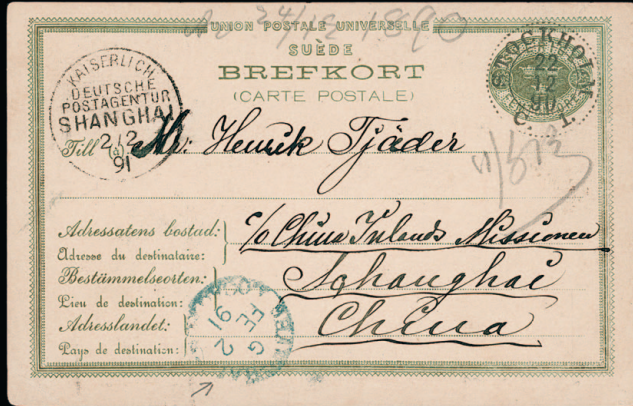 24/12 1890
UNION POSTALE UNIVERSELLE
SUEDE
BREFKORT
(CARTE POSTALE)
STOCKHOLM
22
12
90
C. 1.
KAISERLICH
DEUTSCHE
POSTAGENTUR
SHANGHAI
2/2
91
Till
Mr: Henrik Tjäder
Adressatens bostad:
Adresse du destinataire:
c/o China Inlands Missionen
Bestämmelseorten:
Lieu de destination:
Schanghai
Adresslandet:
Pays de destination:
China
G
FE 2
91